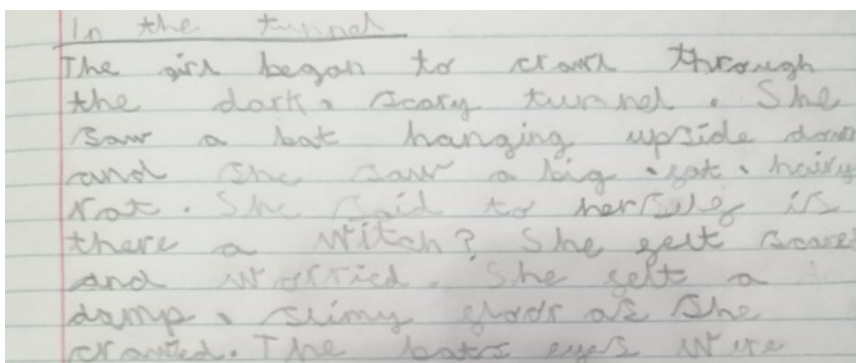 In the tunnel
The girl began to crawl through
the dark, scary tunnel. She
saw a bat hanging upside down
and she saw a big, fat, hairy
rat. She said to herself is
there a Witch? She felt scared
and worried. She felt a
damp, slimy floor as she
crawled. The bats eyes were